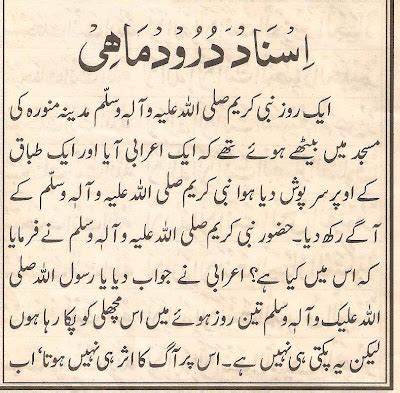 اِسْنَادْ دُرُوْد مَاهِیْ
ایک روز نبی کریم صلی اللہ علیہ وآلہ وسلّم مدینہ منورہ کی
مسجد میں بیٹھے ہوئے تھے کہ ایک اعرابی آیا اور ایک طباق
کے اوپر سر پوش دیا ہوا نبی کریم صلی اللہ علیہ وآلہ وسلّم کے
آگے رکھ دیا۔ حضور نبی کریم صلی اللہ علیہ وآلہ وسلم نے فرمایا
کہ اس میں کیا ہے؟ اعرابی نے جواب دیا یا رسول اللہ صلی
اللہ علیک وآلہ وسلم تین روز ہوئے میں اس مچھلی کو پکا رہا ہوں
لیکن یہ پکتی ہی نہیں ہے۔ اس پر آگ کا اثر ہی نہیں ہوتا‘ اب